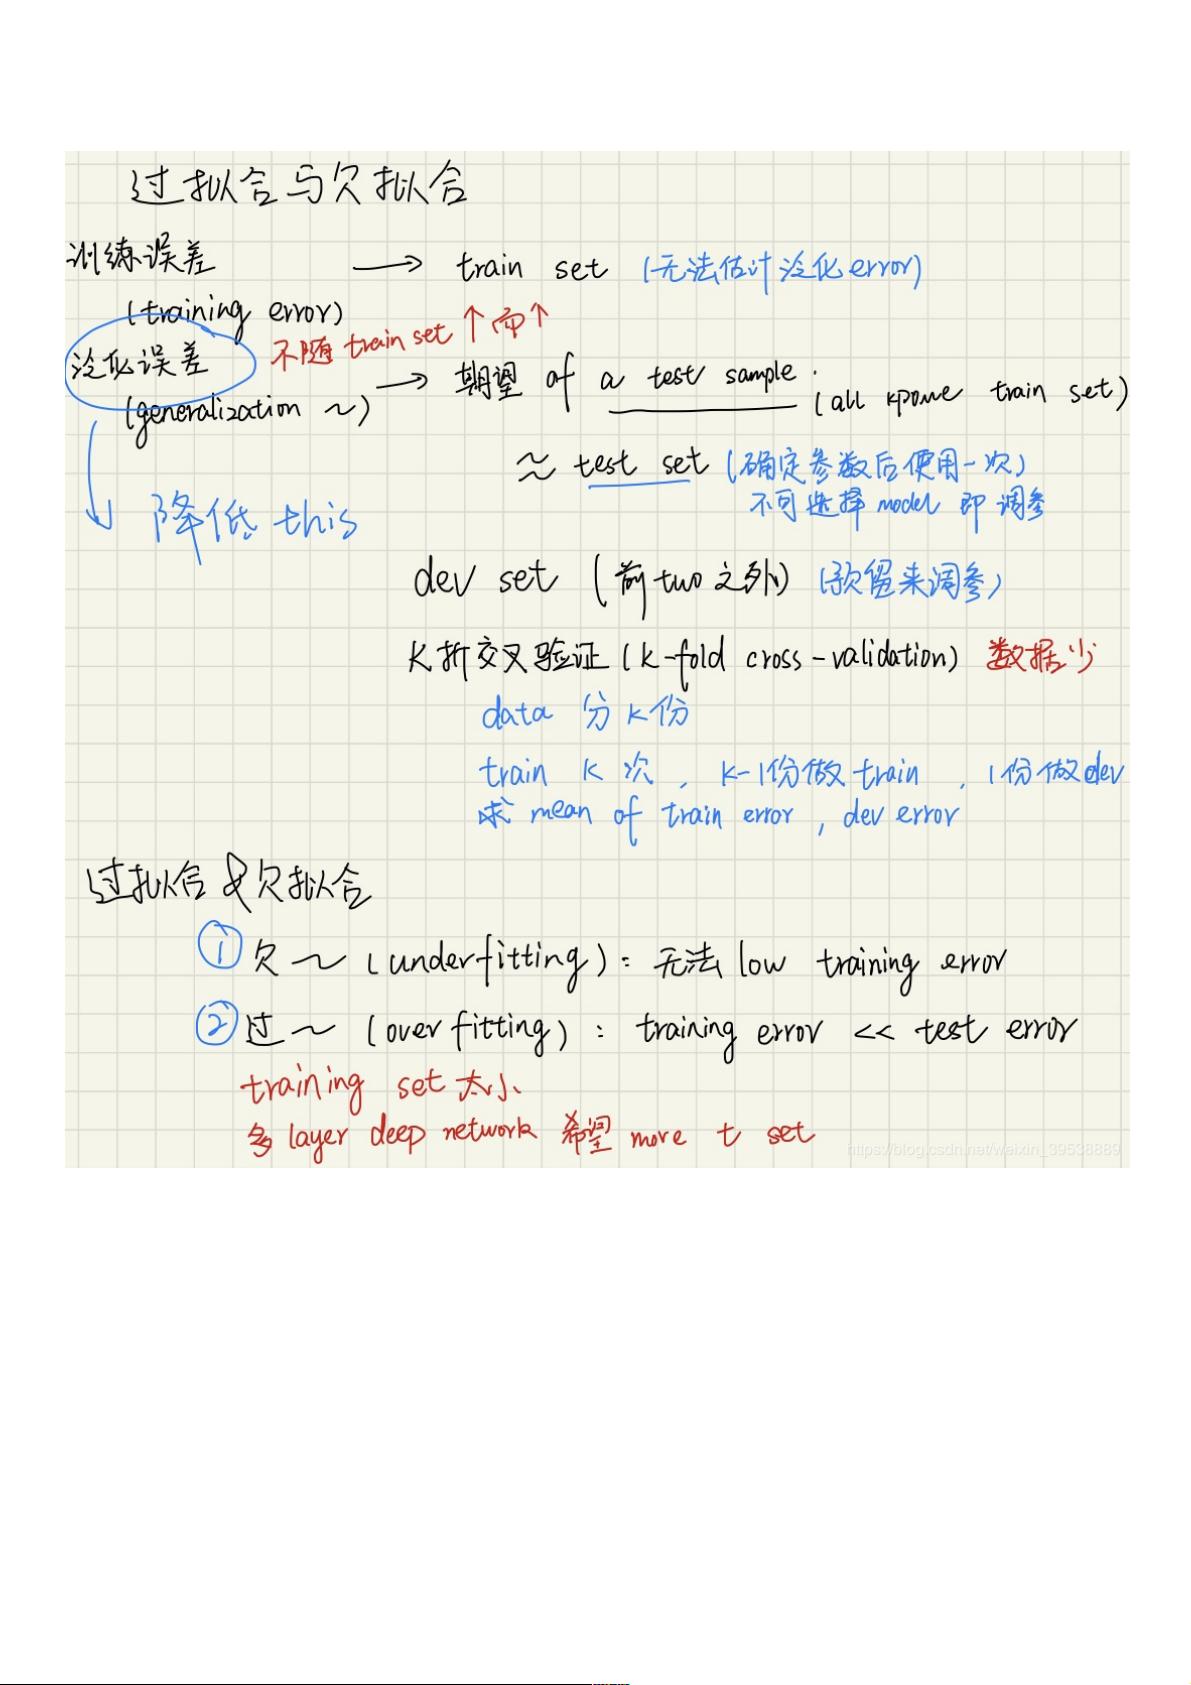 过拟合与欠拟合
训练误差 → train set (无法估计泛化error)
(training error)
不随 train set ↑ 而 ↑
泛化误差 → 期望 of a test sample.
(generalization ~) (all train set)
≈ test set (确定参数后使用一次)
不可选择 model 即 调参
降低 this
dev set (前two之外) (预留来调参)
K折交叉验证 (k-fold cross-validation) 数据少
data 分 K份
train K 次, K-1份做 train, 1份做dev
求 mean of train error, dev error
过拟合 & 欠拟合
① 欠~ (underfitting): 无法 low training error
② 过~ (overfitting): training error << test error
training set 太小
多 layer deep network 希望 more t set
https://blog.csdn.net/weixin_39538889